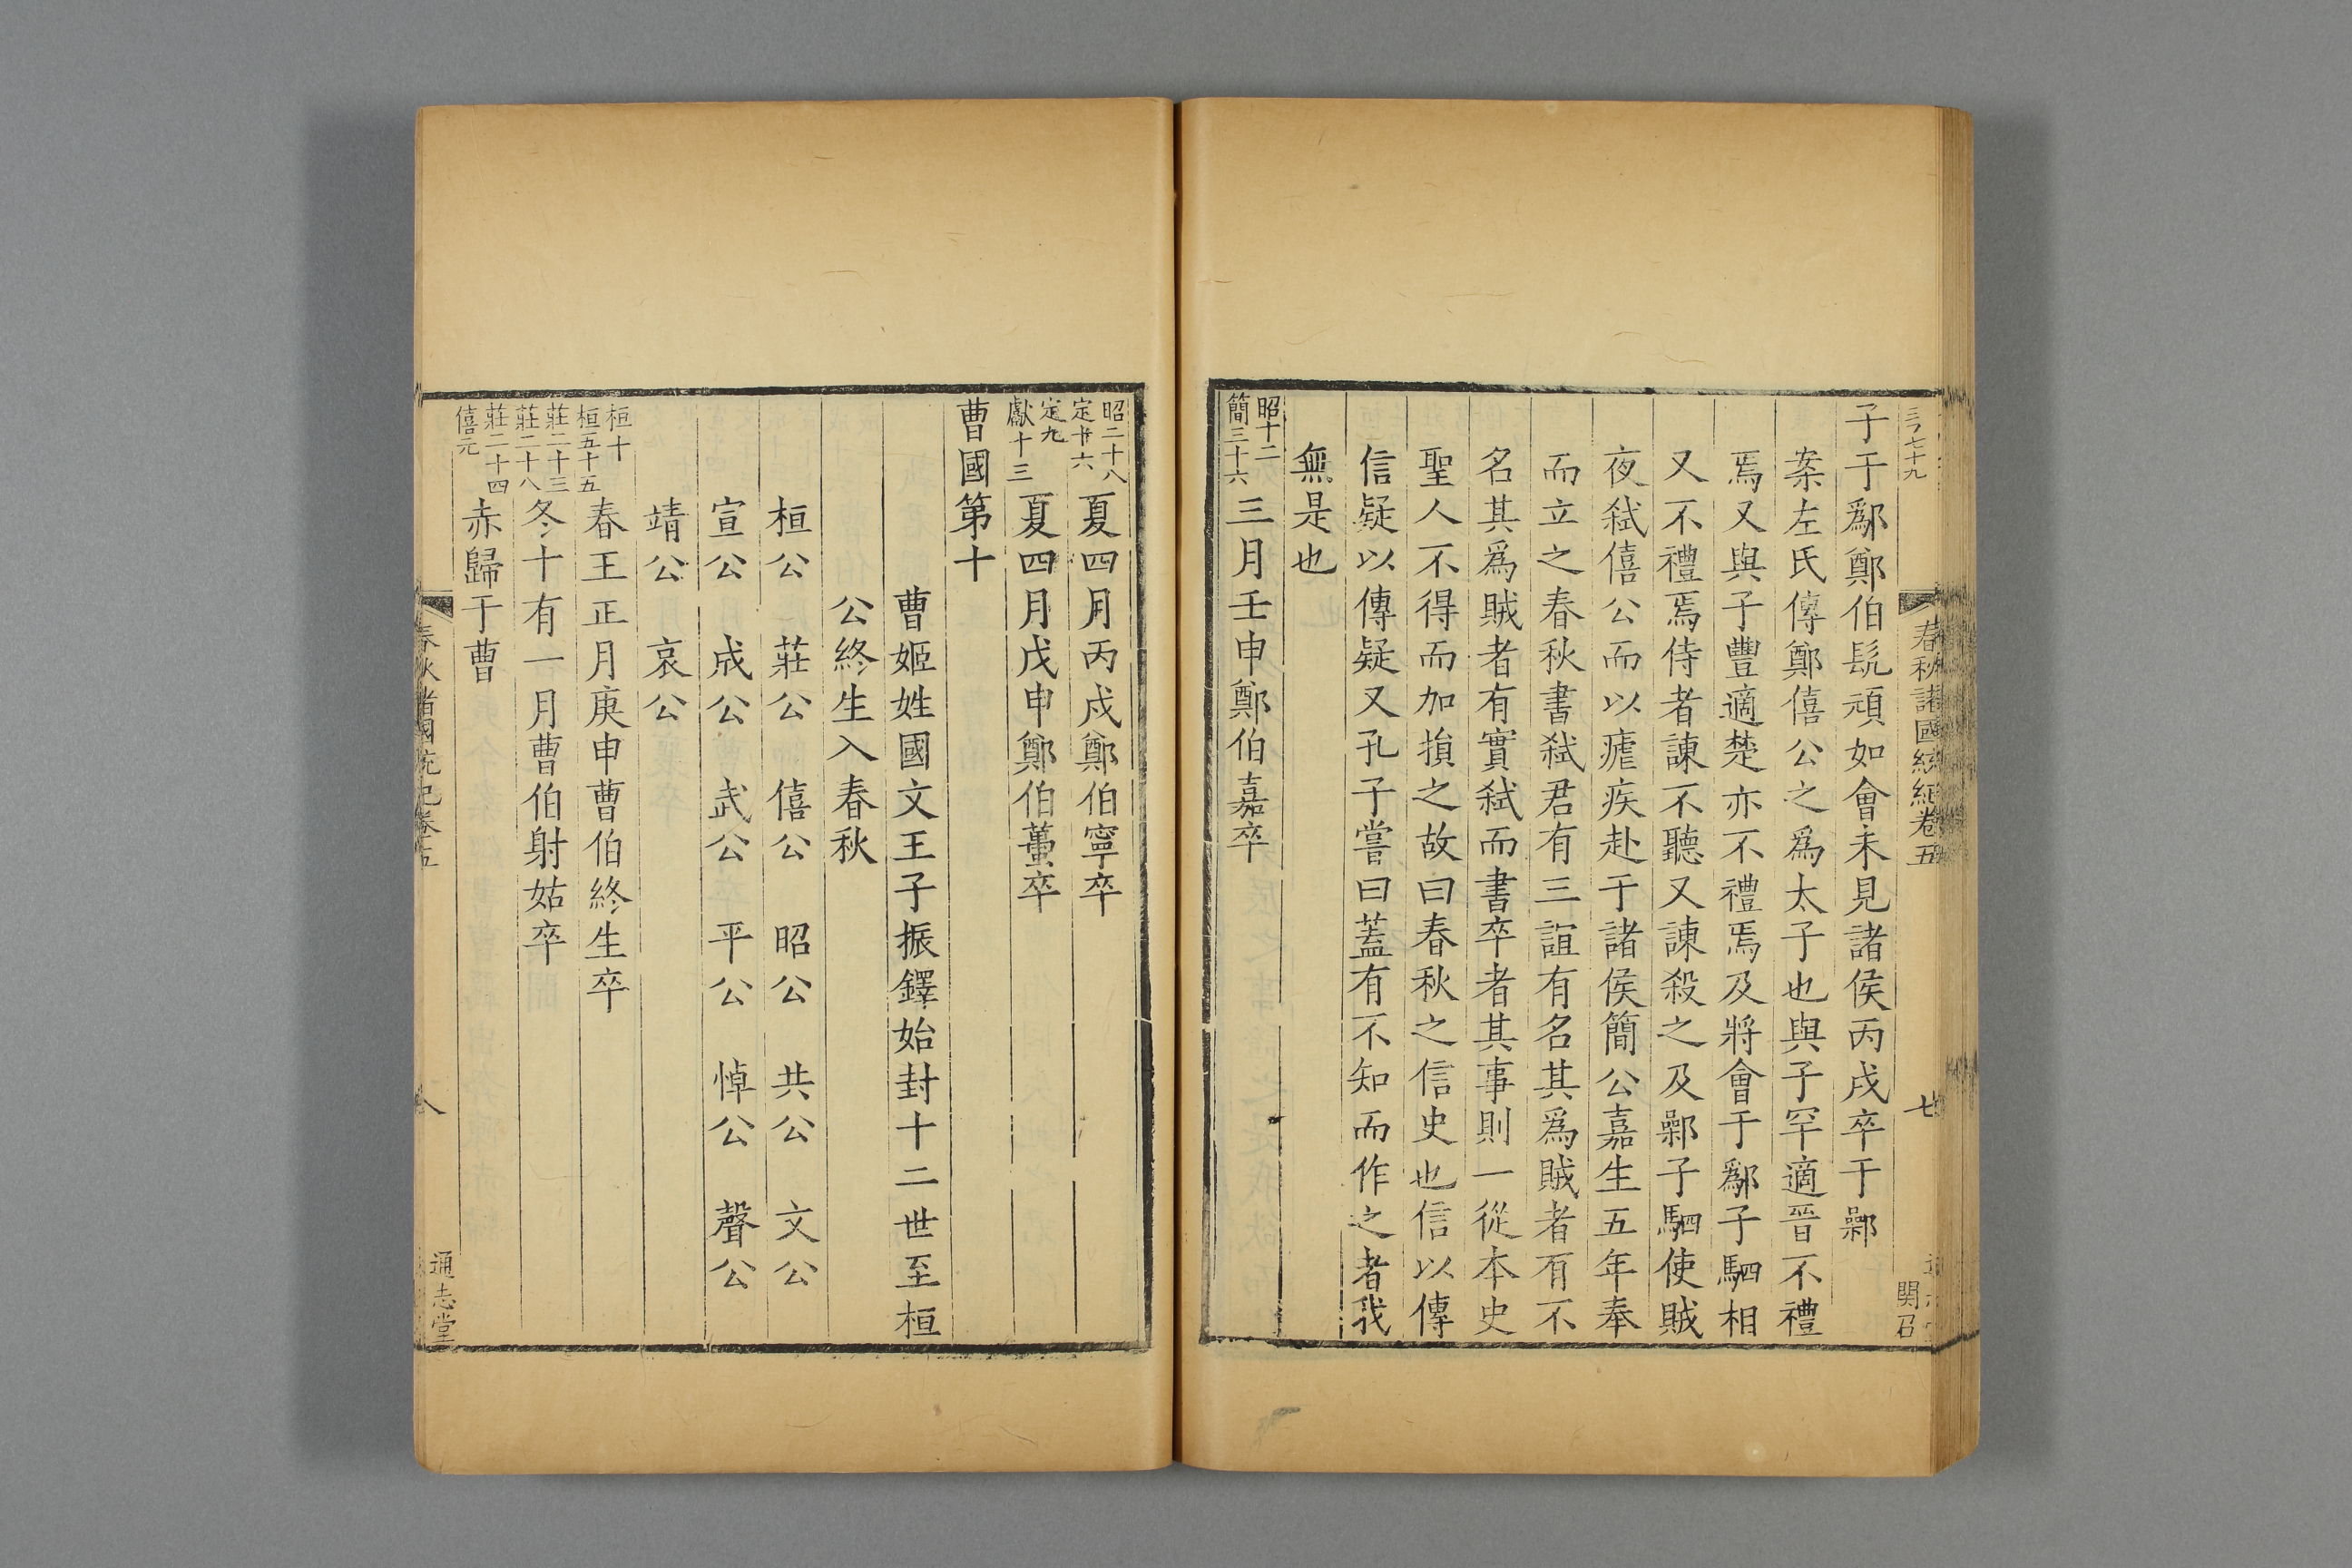 三乃七十九
春秋諸國統紀卷五
七
関召
子于鄬鄭伯髡頑如會未見諸侯丙戌卒于鄵
案左氏傳鄭僖公之爲太子也與子罕適晉不禮
焉又與子豐適楚亦不禮焉及將會于鄬子駟相
又不禮焉侍者諫不聽又諫殺之及鄵子駟使賊
夜弒僖公而以瘧疾赴于諸侯簡公嘉生五年奉
而立之春秋書弒君有三誼有名其爲賊者有不
名其爲賊者有實弒而書卒者其事則一從本史
聖人不得而加損之故曰春秋之信史也信以傳
信疑以傳疑又孔子嘗曰蓋有不知而作之者我
無是也
昭十二
簡三十六
三月壬申鄭伯嘉卒
昭二十八
定廿六
夏四月丙戌鄭伯寧卒
定九
獻十三
夏四月戊申鄭伯蠆卒
曹國第十
曹姬姓國文王子振鐸始封十二世至桓
公終生入春秋
桓公 莊公 僖公 昭公 共公 文公
宣公 成公 武公 平公 悼公 聲公
靖公 哀公
桓十
桓五十五
春王正月庚申曹伯終生卒
莊二十三
莊二十八
冬十有一月曹伯射姑卒
莊二十四
僖元
赤歸于曹
春秋諸國統紀卷五
八
通志堂